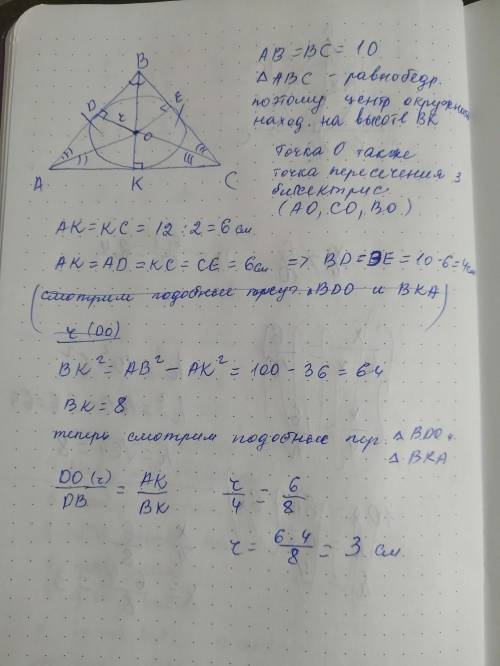 AB = BC = 10
Δ ABC - равнобедр.
поэтому центр окружност
наход. на высоте BK
Точка O также
точка пересечения 3
биссектрис
(AO, CO, BO)
B
D
E
r
O
A
K
C
AK = KC = 12 : 2 = 6 см.
AK = AD = KC = CE = 6 см. => BD = BE = 10 - 6 = 4 см
(смотрим подобные треуг. ΔBDO и BKA)
r (DO)
BK² = AB² - AK² = 100 - 36 = 64
BK = 8
теперь смотрим подобные тр. Δ BDO и
Δ BKA
DO (r) / DB = AK / BK r / 4 = 6 / 8
r = 6 · 4 / 8 = 3 см.